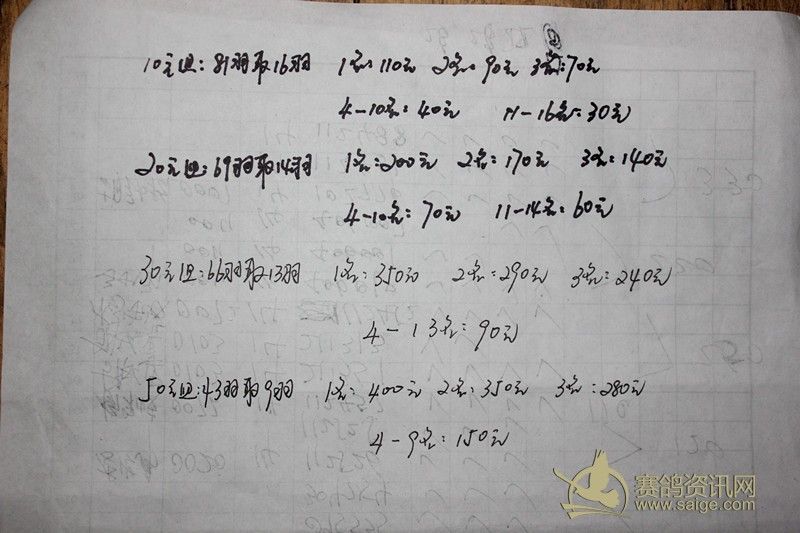 10元组:81羽取16羽 1名:110元 2名:90元 3名:70元
4-10名:40元 11-16名:30元
20元组:69羽取14羽 1名:200元 2名:170元 3名:140元
4-10名:70元 11-14名:60元
30元组:66羽取13羽 1名:350元 2名:290元 3名:240元
4-13名:90元
50元组:43羽取9羽 1名:400元 2名:350元 3名:280元
4-9名:150元
赛鸽资讯网
www.saige.com